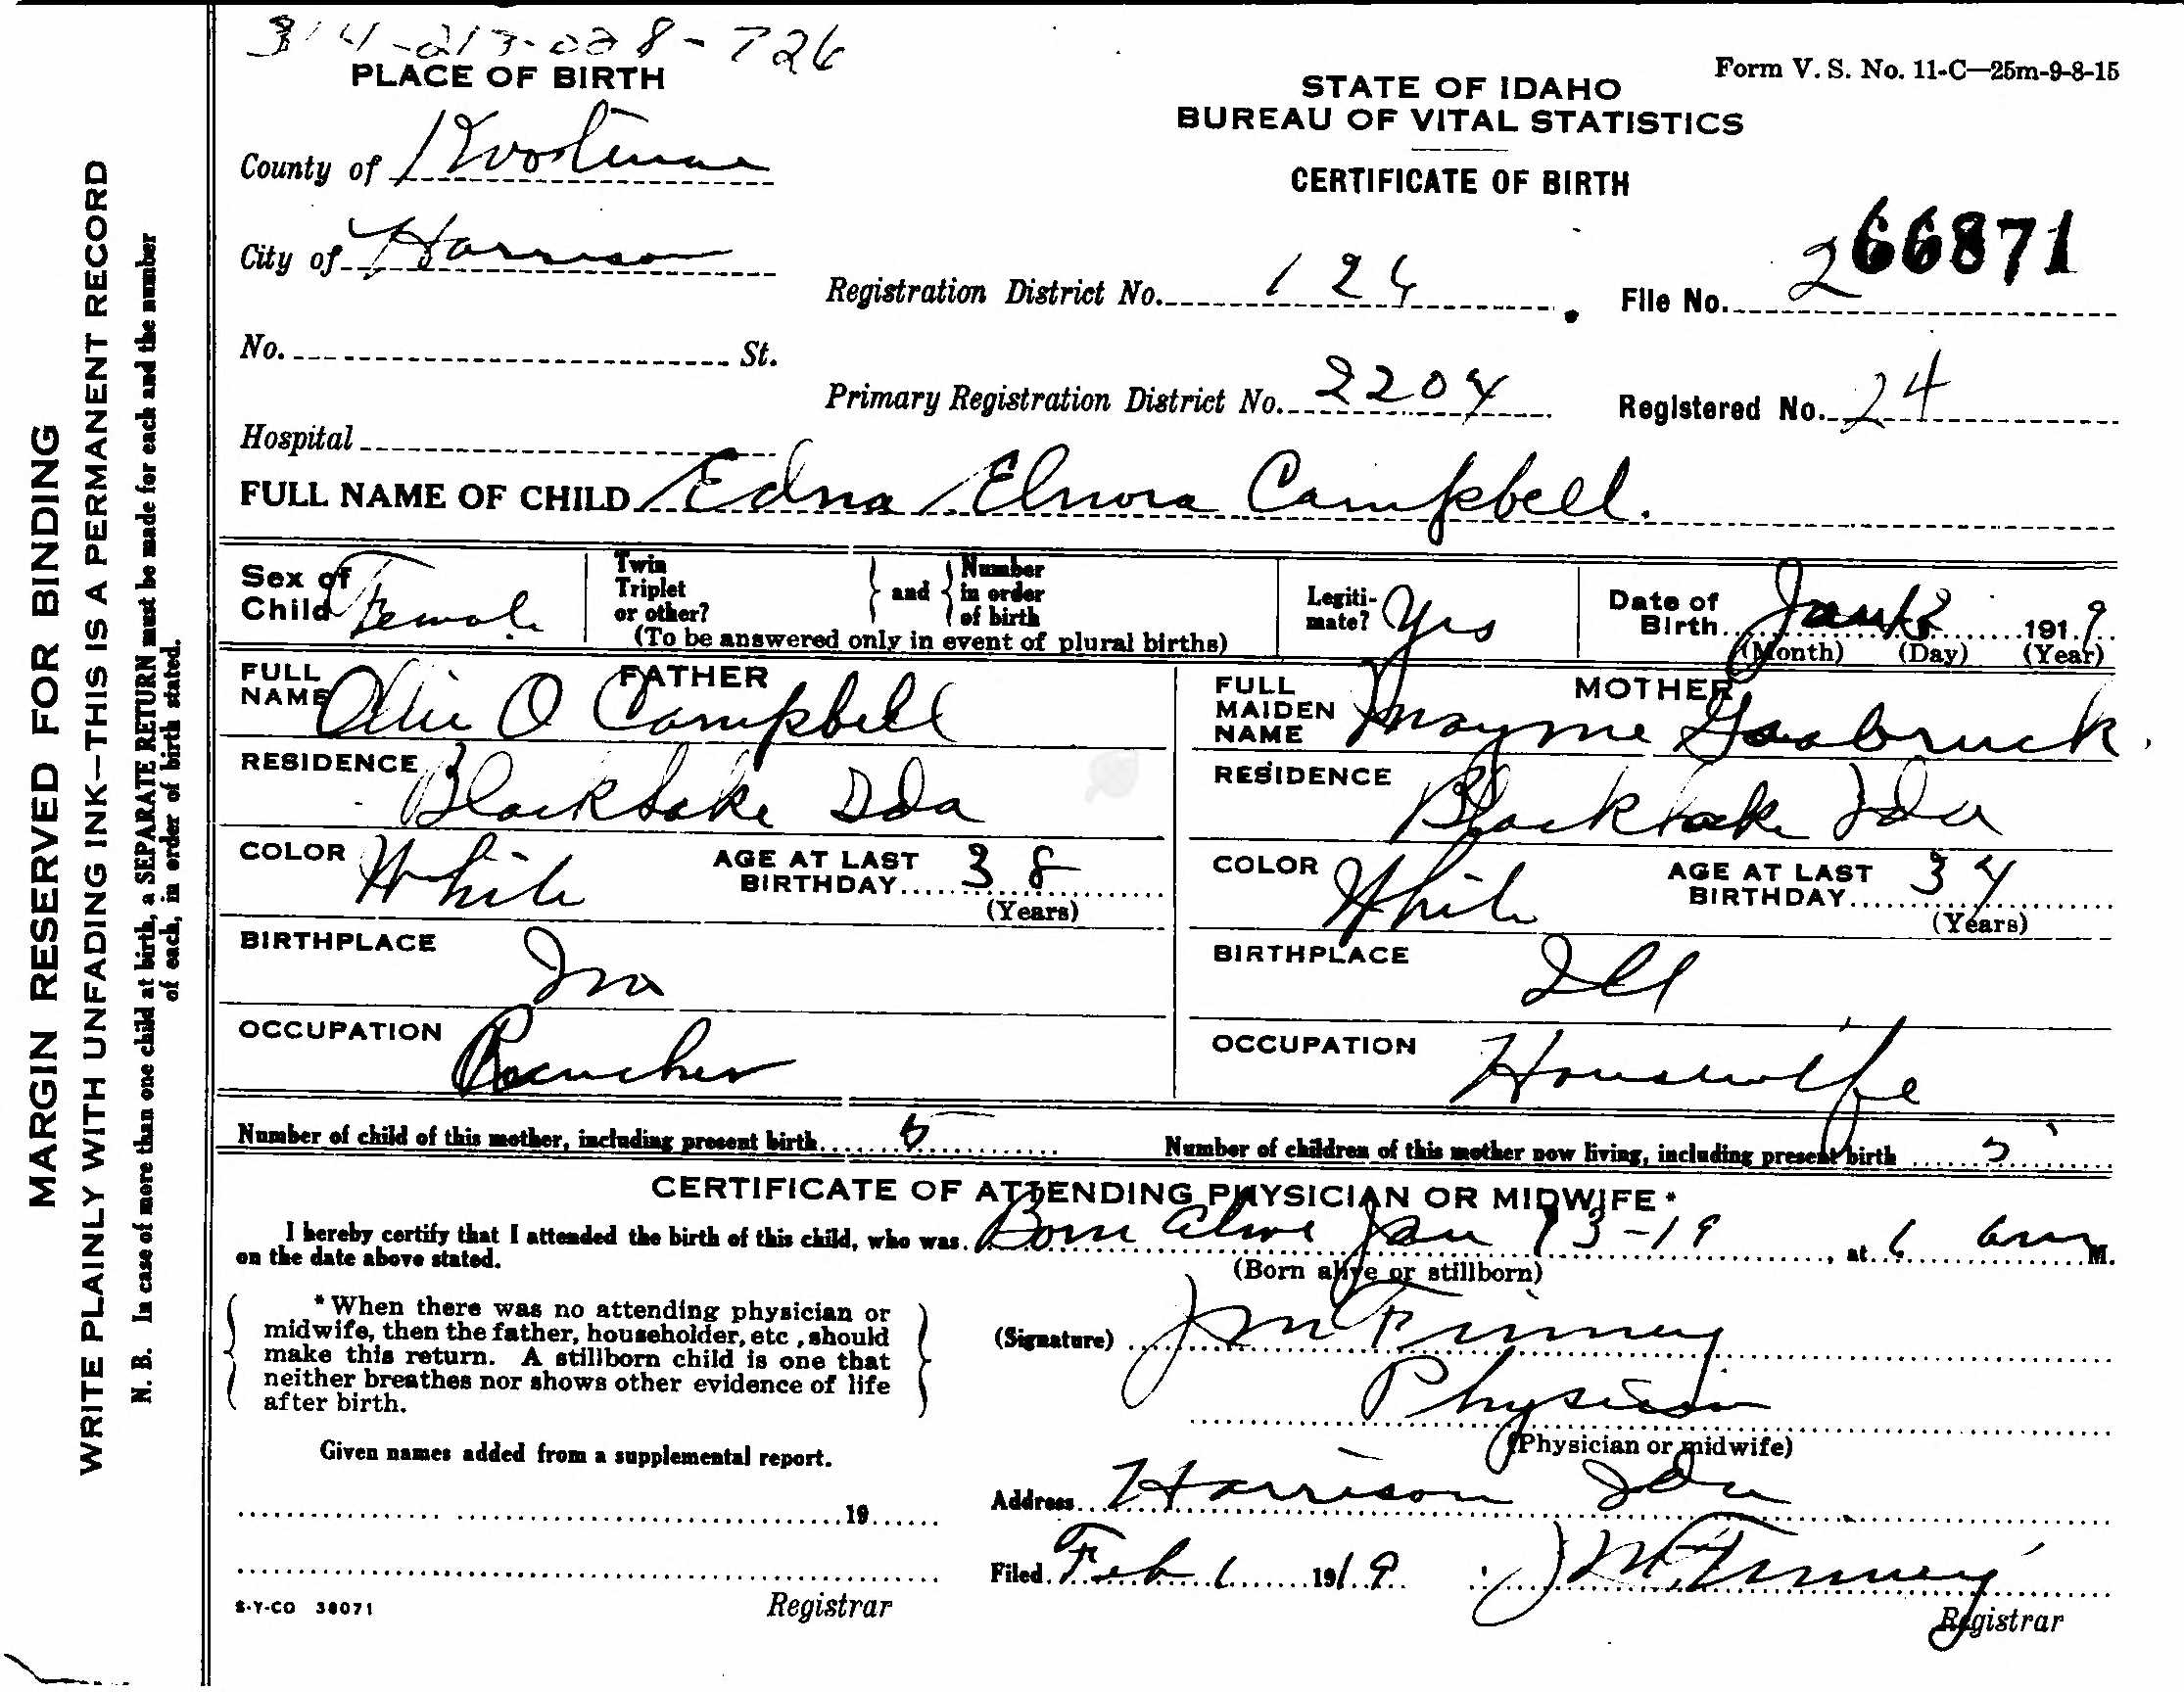 314-213-028-726
PLACE OF BIRTH
Form V. S. No. 11-C—25m-9-8-15
STATE OF IDAHO
BUREAU OF VITAL STATISTICS
CERTIFICATE OF BIRTH
County of Kootenai
City of Harrison
266871
Registration District No. 124
File No.
No. St.
Primary Registration District No. 2204
Registered No. 24
Hospital
FULL NAME OF CHILD Edna Elnora Campbell.
Sex of Child Female
Twin Triplet or other? and Number in order of birth
(To be answered only in event of plural births)
Legiti-mate? Yes
Date of Birth Jan 1919
(Month) (Day) (Year)
FATHER
FULL NAME Ollie O Campbell
MOTHER
FULL MAIDEN NAME Mayme
RESIDENCE Blacklake Ida
RESIDENCE Blacklake Ida
COLOR White
AGE AT LAST BIRTHDAY 38
(Years)
COLOR White
AGE AT LAST BIRTHDAY 34
(Years)
BIRTHPLACE
BIRTHPLACE Ill
OCCUPATION Rancher
OCCUPATION Housewife
Number of child of this mother, including present birth 5
Number of children of this mother now living, including present birth 5
CERTIFICATE OF ATTENDING PHYSICIAN OR MIDWIFE*
I hereby certify that I attended the birth of this child, who was Born alive Jan 13-19, at 6 am M.
on the date above stated.
(Born alive or stillborn)
*When there was no attending physician or
midwife, then the father, householder, etc., should
make this return. A stillborn child is one that
neither breathes nor shows other evidence of life
after birth.
(Signature) J M Finney
Physician
(Physician or midwife)
Given names added from a supplemental report.
19
Address Harrison Ida
Filed Feb 1 1919 J M Finney
Registrar
Registrar
S-Y-CO 38071
MARGIN RESERVED FOR BINDING
WRITE PLAINLY WITH UNFADING INK—THIS IS A PERMANENT RECORD
N. B. In case of more than one child at birth, a SEPARATE RETURN must be made for each and the number
of each, in order of birth stated.